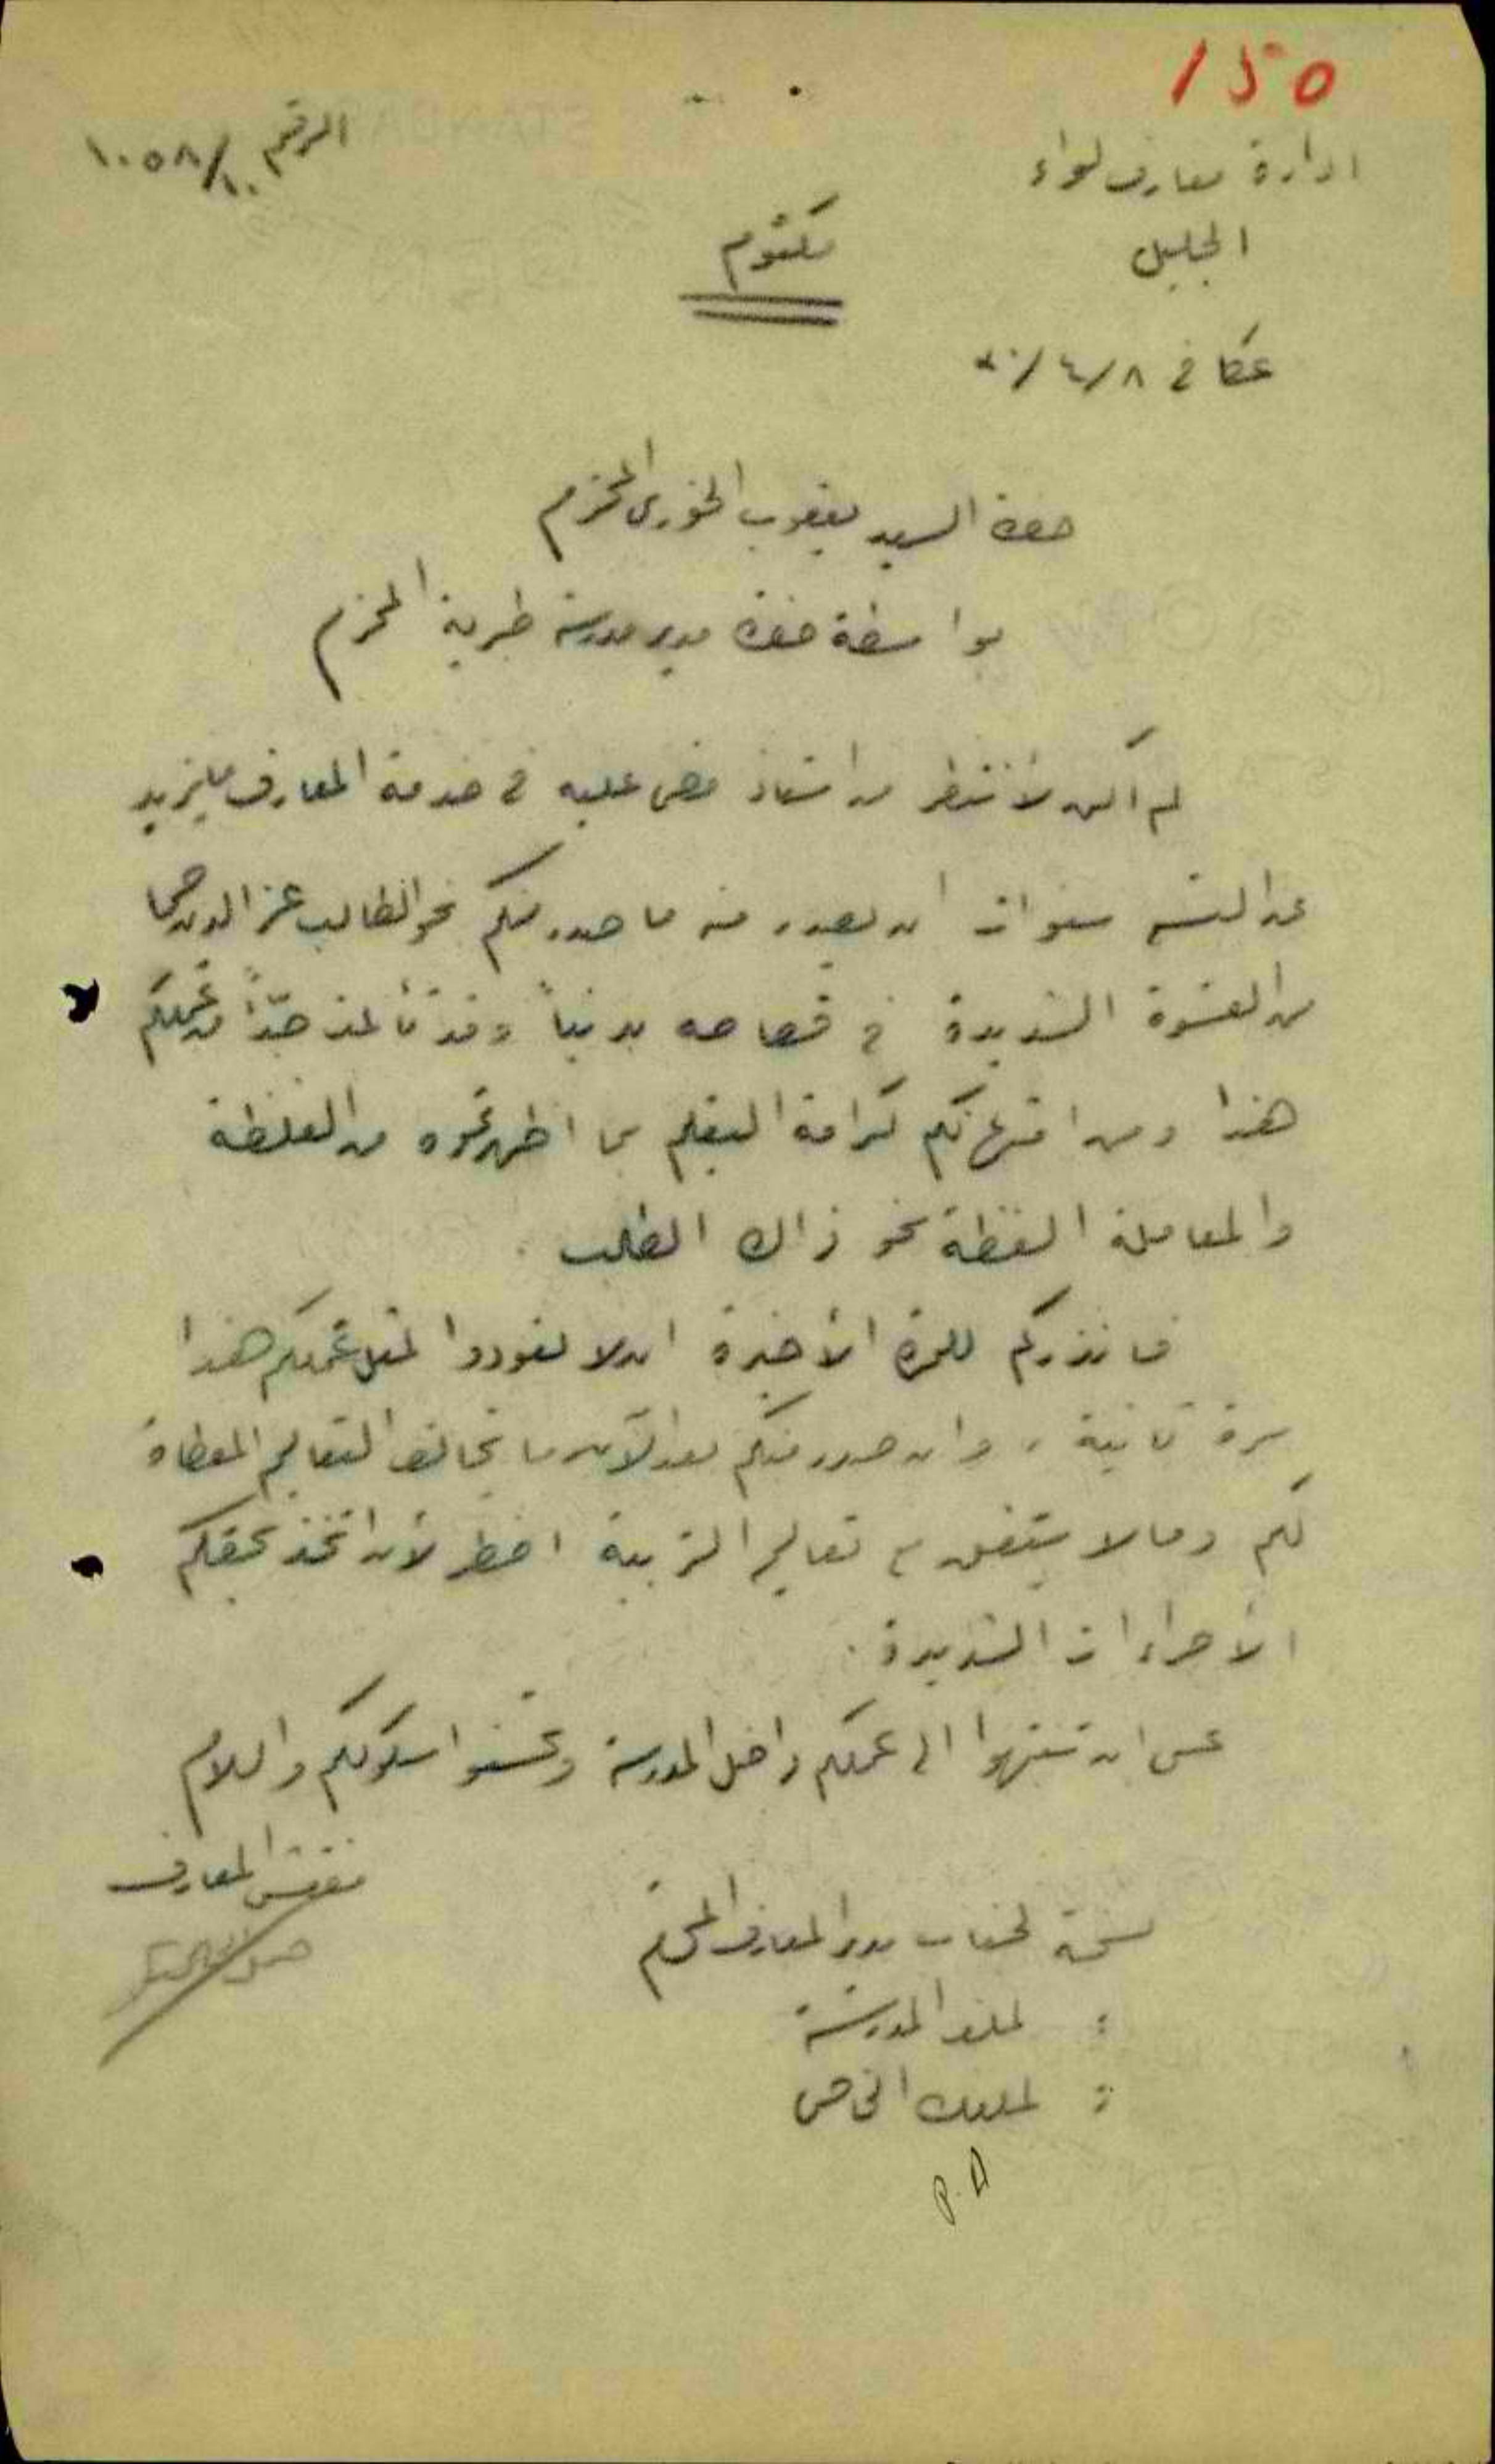 150
ادارة معارف لواء
الجليل
الرقم ١٠٥٨/١٠
مكتوم
عكا في ٨/٤/
حضرة السيد يعقوب الخوري المحترم
بواسطة حضرة مدير مدرسة طبرية المحترم
لم أكن لأنتظر من استاذ مضى عليه في خدمة المعارف ما يزيد
عن الست سنوات ان يصدر منه ما صدر منكم نحو الطالب عز الدين
من القسوة الشديدة في قصاصه بدنياً وقد تألمت جدّاً من عملكم
هذا ومن امتهانكم كرامة التعليم بما اظهرتموه من الغلظة
والمعاملة الفظة نحو ذاك الطالب .
فانذركم للمرة الأخيرة ان لا تعودوا لمثل عملكم هذا
مرة ثانية ، وان صدر منكم بعد الآن ما يخالف التعاليم المعطاة
لكم وما لا يتفق مع تعاليم التربية اضطر لأن اتخذ بحقكم
الأجراءات الشديدة .
عسى ان تنتبهوا الى عملكم داخل المدرسة وتحسنوا سلوككم والسلام
مفتش المعارف
نسخة لجناب مدير المعارف المحترم
: لملف المدرسة
: لملفك الخاص
P.A